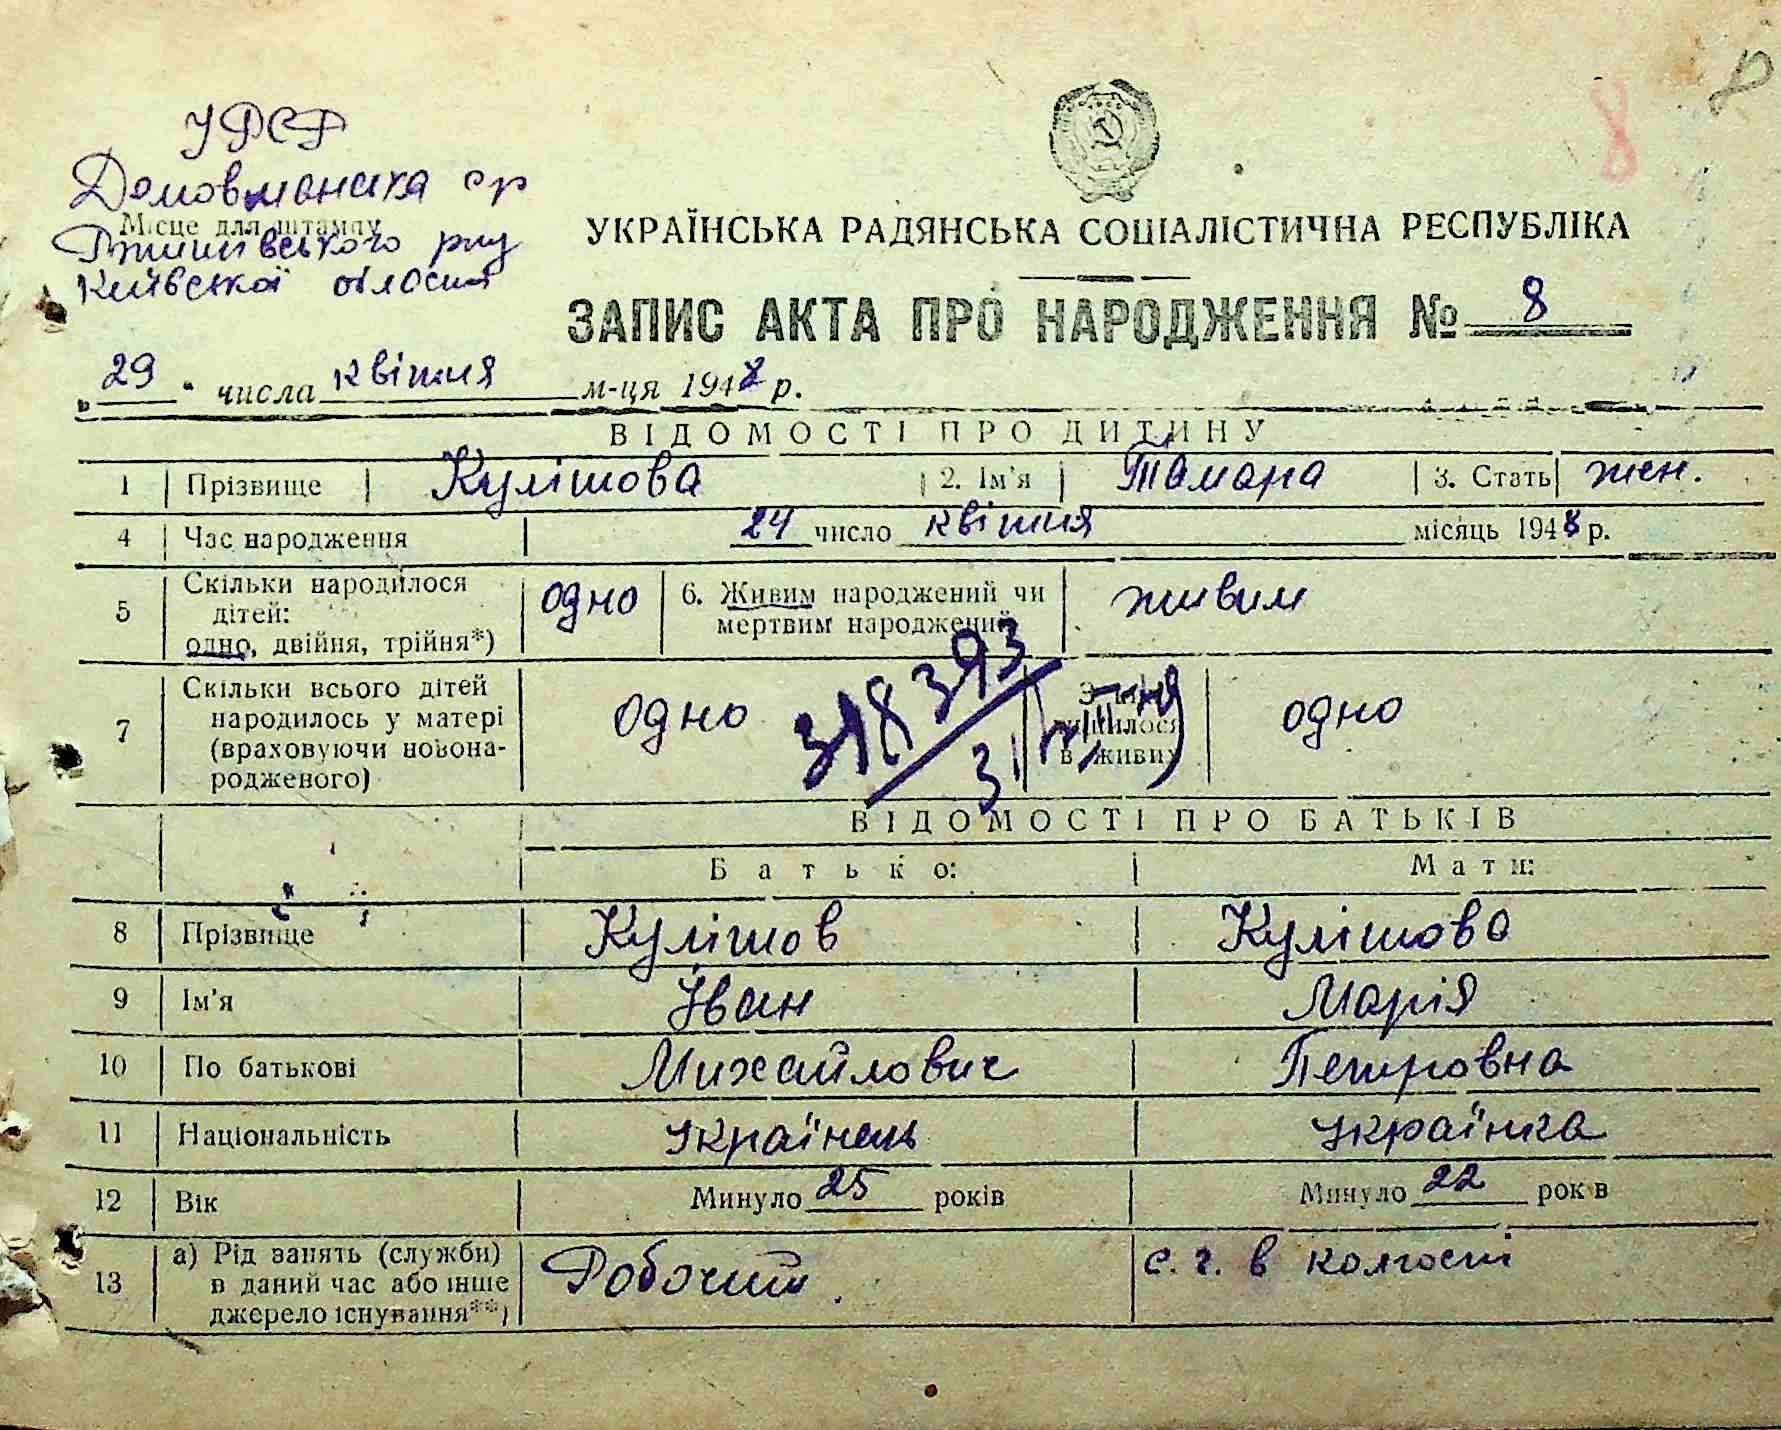 8
8
УРСР
Домовманська ср
Місце для штампу
Ржищівського р-ну
Київської області
УКРАЇНСЬКА РАДЯНСЬКА СОЦІАЛІСТИЧНА РЕСПУБЛІКА
ЗАПИС АКТА ПРО НАРОДЖЕННЯ № 8
„29“ числа квітня м-ця 1948 р.
ВІДОМОСТІ ПРО ДИТИНУ
1 Прізвище Кулішова 2. Ім'я Тамара 3. Стать жен.
4 Час народження 24 число квітня місяць 1948 р.
5 Скільки народилося дітей: одно, двійня, трійня*) одно 6. Живим народжений чи мертвим народжений живим
7 Скільки всього дітей народилось у матері (враховуючи новонародженого) одно З них лишилося в живих одно
318393
ВІДОМОСТІ ПРО БАТЬКІВ
Батько: Мати:
8 Прізвище Кулішов Кулішова
9 Ім'я Іван Марія
10 По батькові Михайлович Петровна
11 Національність Українець Українка
12 Вік Минуло 25 років Минуло 22 років
13 а) Рід занять (служби) в даний час або інше джерело існування**) Робочий с. г. в колгоспі